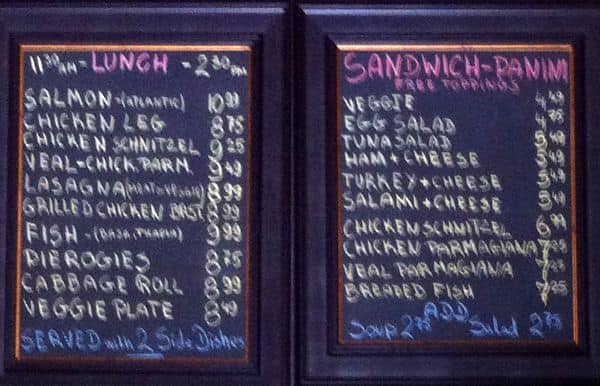 11 30 AM - LUNCH - 2 30 PM
SALMON - (ATLANTIC) 10 99
CHICKEN LEG 8 75
CHICKEN SCHNITZEL 9 25
VEAL + CHICK PARM. 9 49
LASAGNA (MEAT or VEGGIE) 8 99
GRILLED CHICKEN BAST 8 99
FISH - (BASA, TILAPIA) 9 99
PIEROGIES 8 75
CABBAGE ROLL 8 99
VEGGIE PLATE 8 49
SERVED with 2 Side Dishes
SANDWICH - PANINI
FREE TOPPINGS
VEGGIE 4 49
EGG SALAD 4 75
TUNA SALAD 5 49
HAM + CHEESE 5 49
TURKEY + CHEESE 5 49
SALAMI + CHEESE 5 49
CHICKEN SCHNITZEL 6 99
CHICKEN PARMAGIANA 7 25
VEAL PARMAGIANA 7 25
BREADED FISH 7 25
ADD
Soup 2 75 Salad 2 75